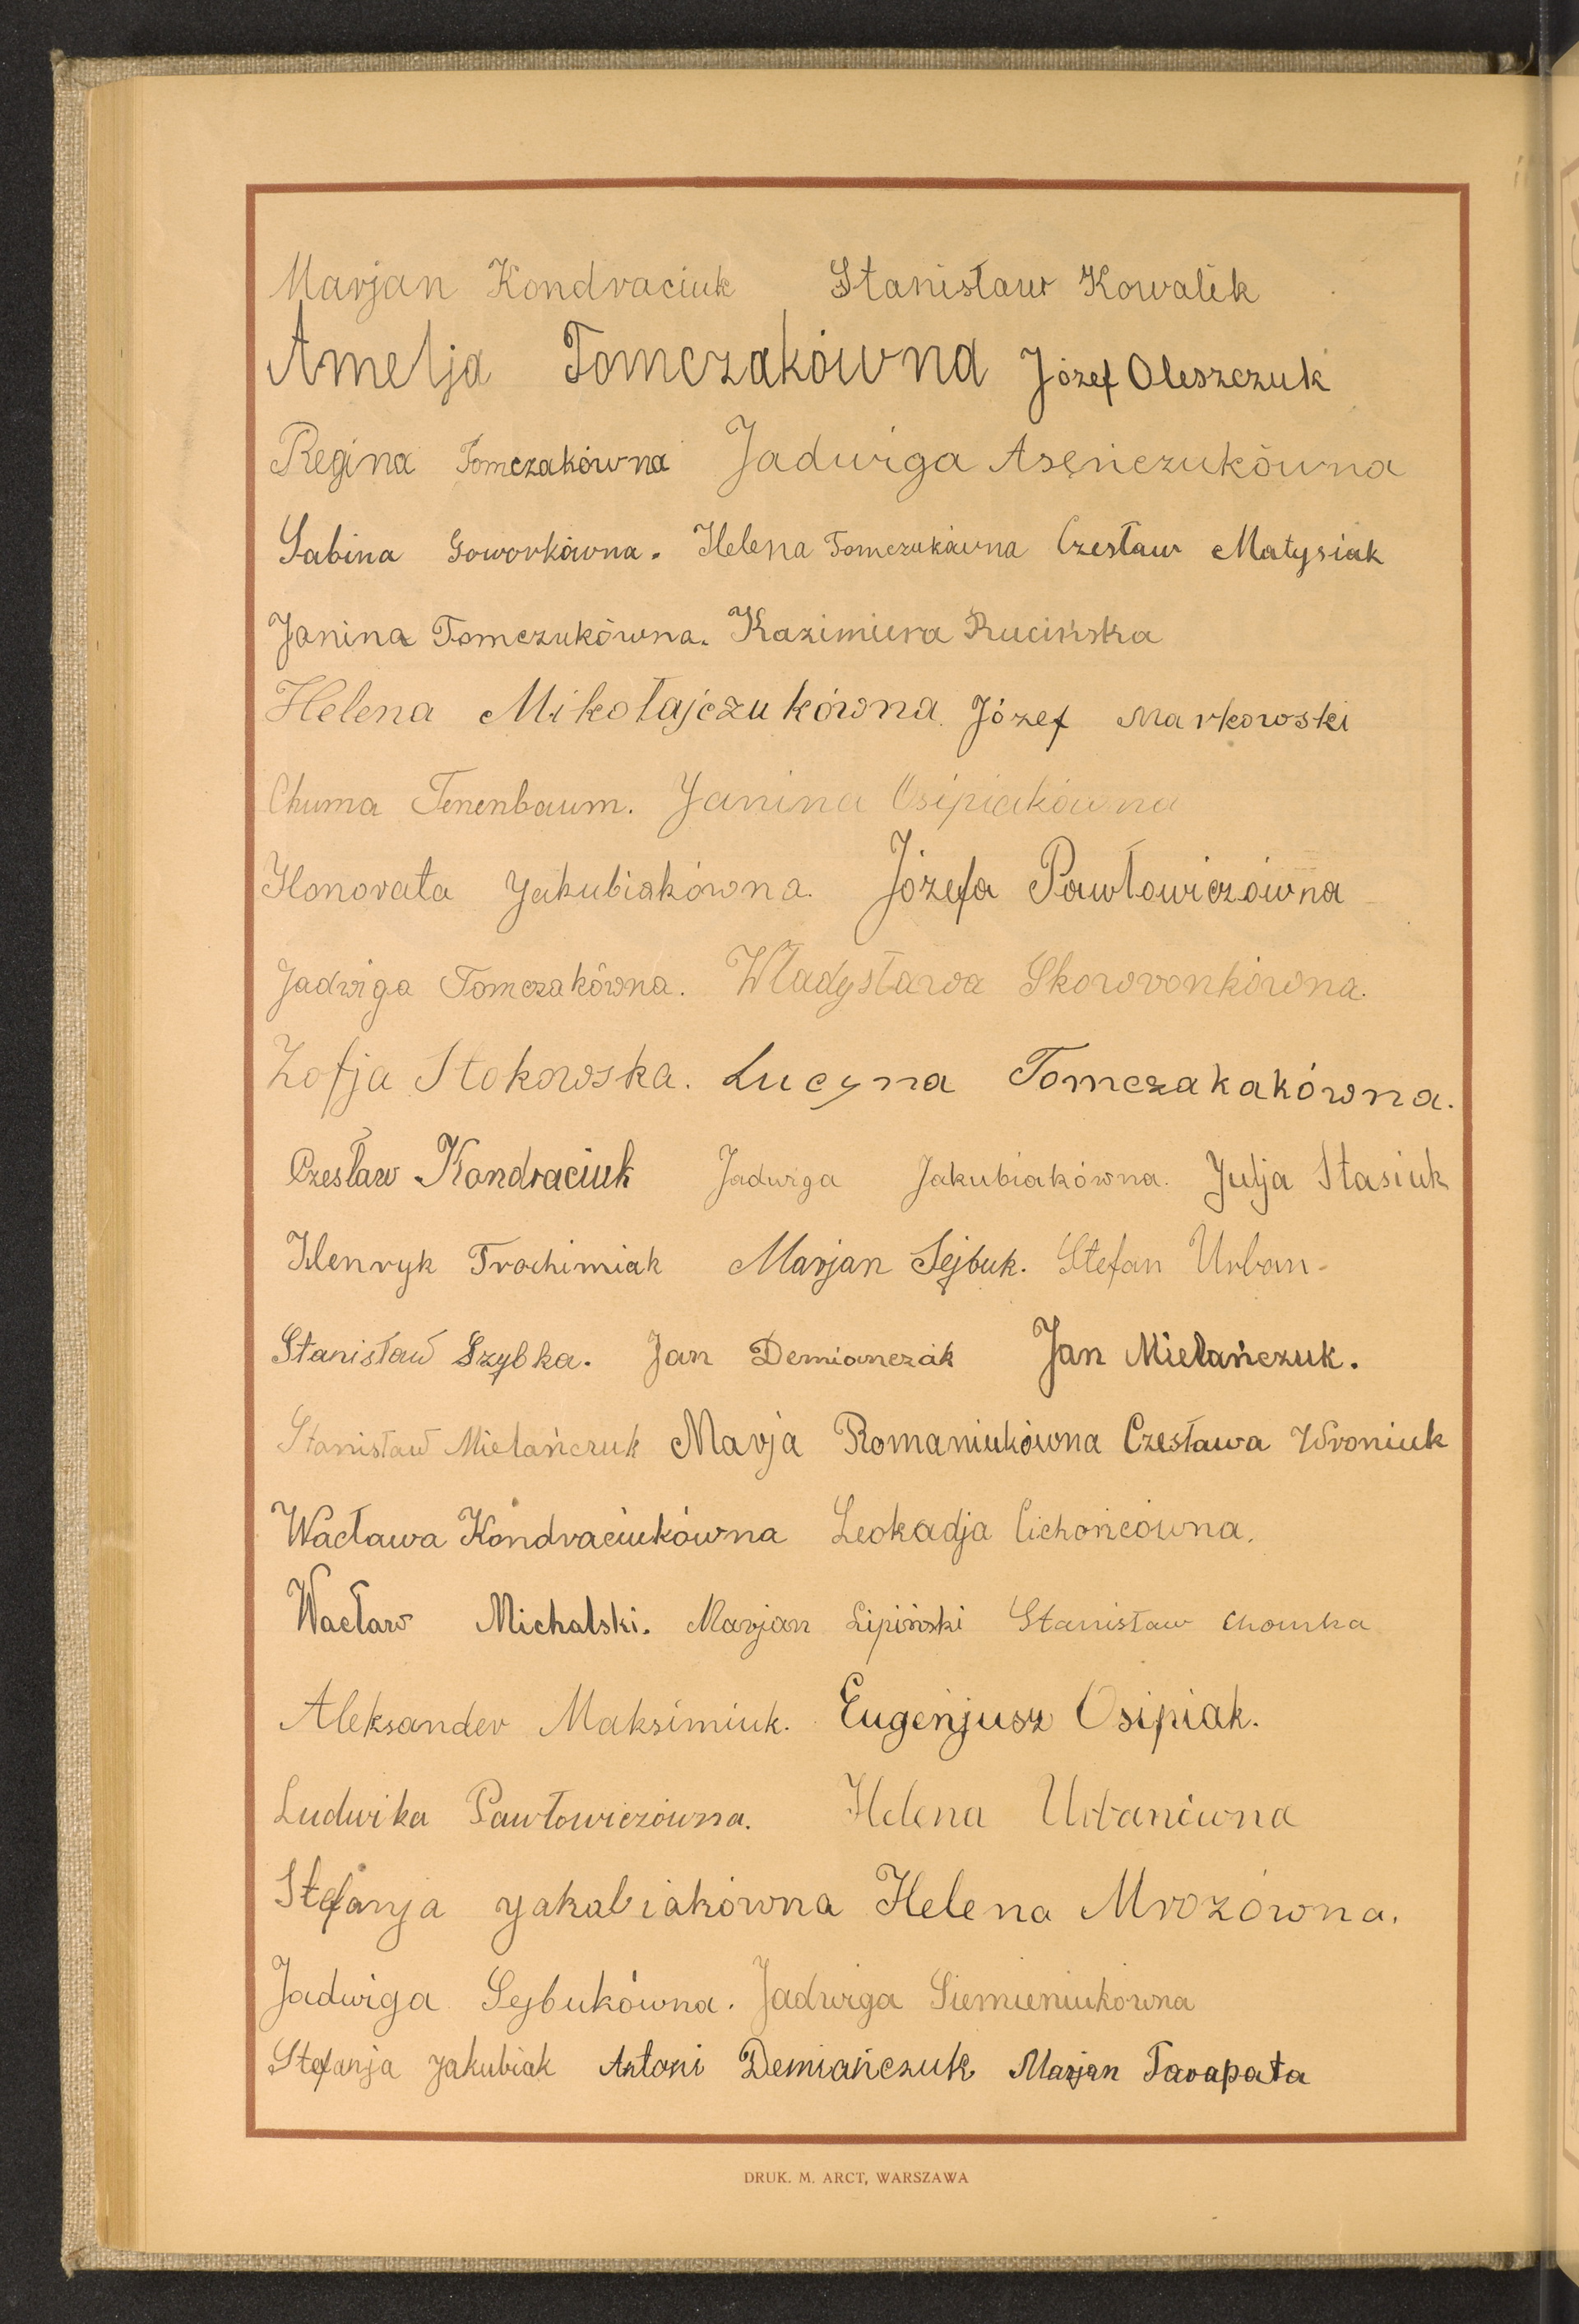 Marjan Kondraciuk Stanisław Kowalik
Amelja Tomczakówna Józef Oleszczuk
Regina Tomczakówna Jadwiga Aseńczukówna
Sabina Goworkówna. Helena Tomczukówna Czesław Matysiak
Janina Tomczukówna. Kazimiera Rucińska
Helena Mikołajczukówna. Józef Markowski
Chuma Tenenbaum. Janina Osipiakówna
Honorata Jakubiakówna. Józefa Pawłowiczówna
Jadwiga Tomczakówna. Władysława Skowronkówna.
Zofja Stokowska. Lucyna Tomczakakówna.
Czesław Kondraciuk Jadwiga Jakubiakówna. Julja Stasiuk
Henryk Trochimiak Marjan Sejbuk. Stefan Urban-
Stanisław Szybka. Jan Demianczak Jan Mielańczuk.
Stanisław Mielańczuk Marja Romaniukówna Czesława Wroniuk
Wacława Kondraciukówna Leokadja Cichońcówna.
Wacław Michalski. Marjan Lipiński Stanisław Chomka
Aleksander Maksimiuk. Eugenjusz Osipiak.
Ludwika Pawłowiczówna. Helena Urbanówna
Stefanja Jakubiakówna Helena Mrozówna.
Jadwiga Sejbukówna. Jadwiga Siemieniukówna
Stefanja Jakubiak Antoni Demiańczuk Marjan Tarapata
DRUK. M. ARCT, WARSZAWA